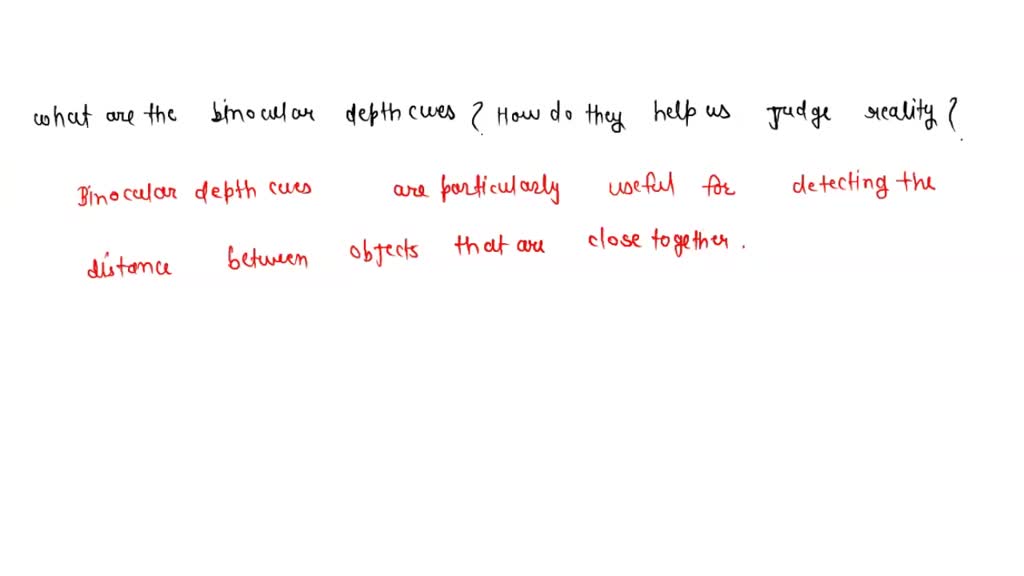 what are the binocular depth cues? How do they help us judge reality?
Binocular depth cues are particularly useful for detecting the
distance between objects that are close together.